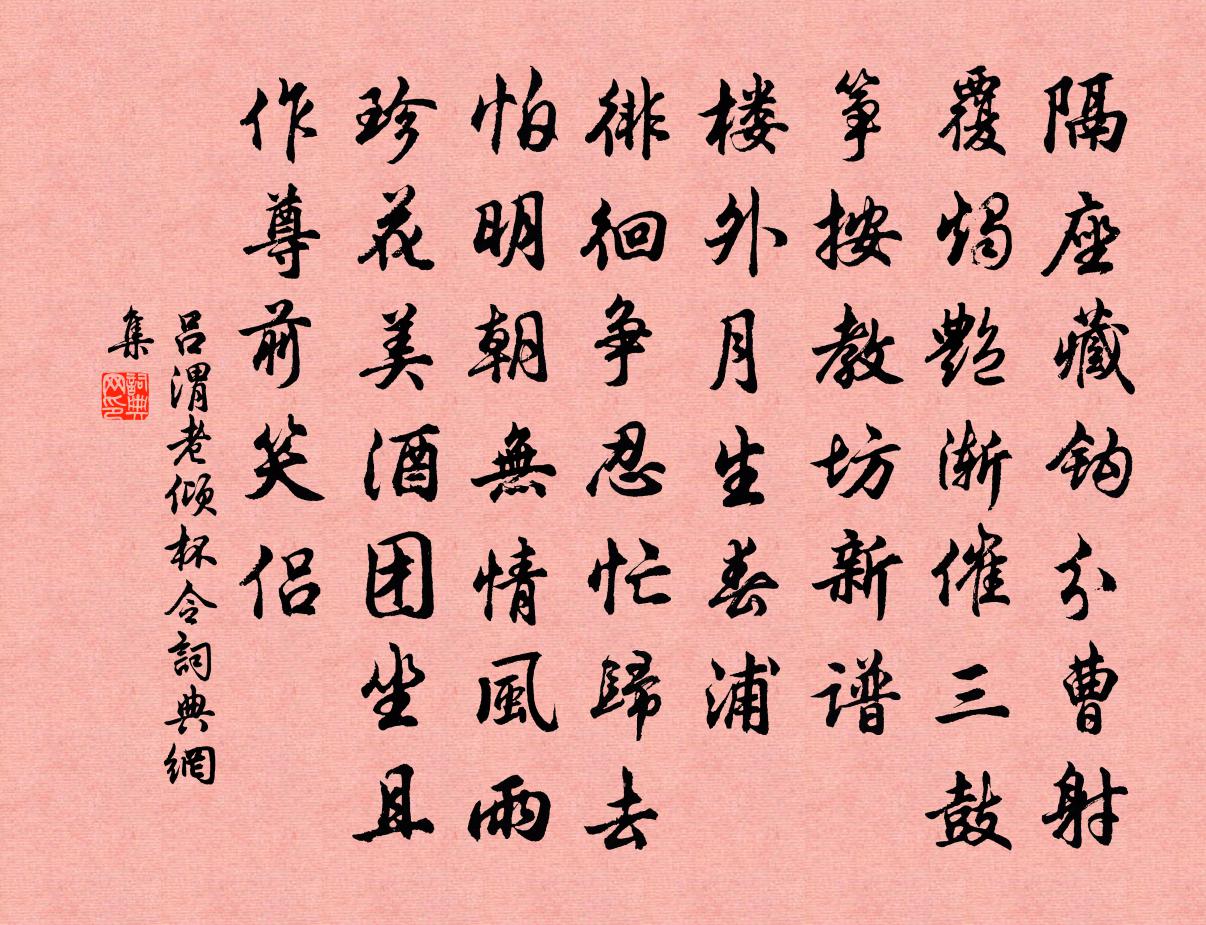 隔座藏钩分曹射
覆烛艶渐催三鼓
筝按教坊新谱
楼外月生春浦
徘徊争忍忙歸去
怕明朝無情風雨
珍花美酒团坐且
作尊前笑侣
吕渭老倾杯令詞典網
集
詞典
网印